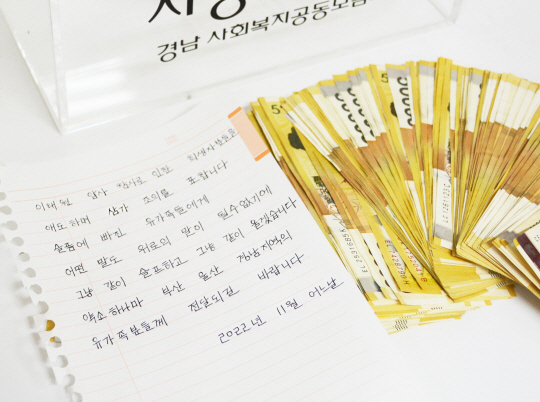 경남 사회복지공동모금
이태원 압사 참사로 인한 희생자분들을
애도하며 삼가 조의를 표합니다
슬픔에 빠진 유가족들에게
어떤 말도 위로의 말이 될수 없기에
그냥 같이 슬프하고 그냥 같이 울겠습니다
약소하나마 부산 울산 경남지역의
유가족분들께 전달되길 바랍니다
2022년 11월 어느날